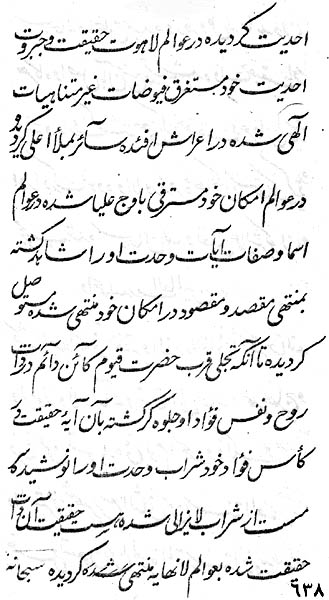 احدیت گردیده در عوالم لاهوت حقیقت و جبروت
احدیت خود مستغرق فیوضات غیر متناهیات
آلهی شده در اعراش افئده سائر بملأ اعلی گردیده و
در عوالم امکان خود مسترقی باوج علیا شده در عوالم
اسما و صفات آیات وحدت او را شاهد گشته
بمنتهی مقصد و مقصود در امکان خود منتهی شده متوصل
گردیده تا آنکه تجلی قرب حضرت قیوم کائن دائم در ذات
روح و نفس فؤاد او جلوه گر گشته بآن آیهٔ حقیقت در
کأس فؤاد خود شراب وحدت او را نوشیده کا
مست از شراب لایزالی شده هست حقیقت آن ذات
حقیقت شده بعوالم لانهایه منتهی شده گردیده سبحانه
٦٣٨